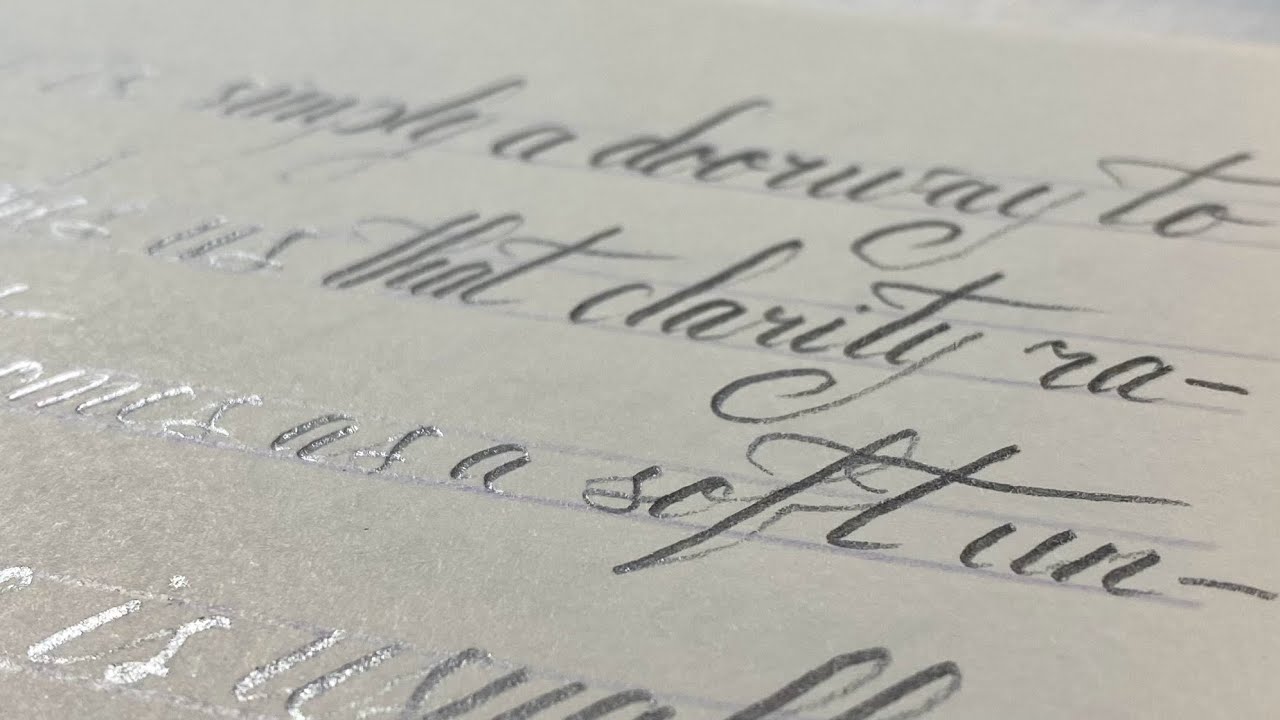 is simply a doorway to
us that clarity ra-
omes as a soft un-
is usuall